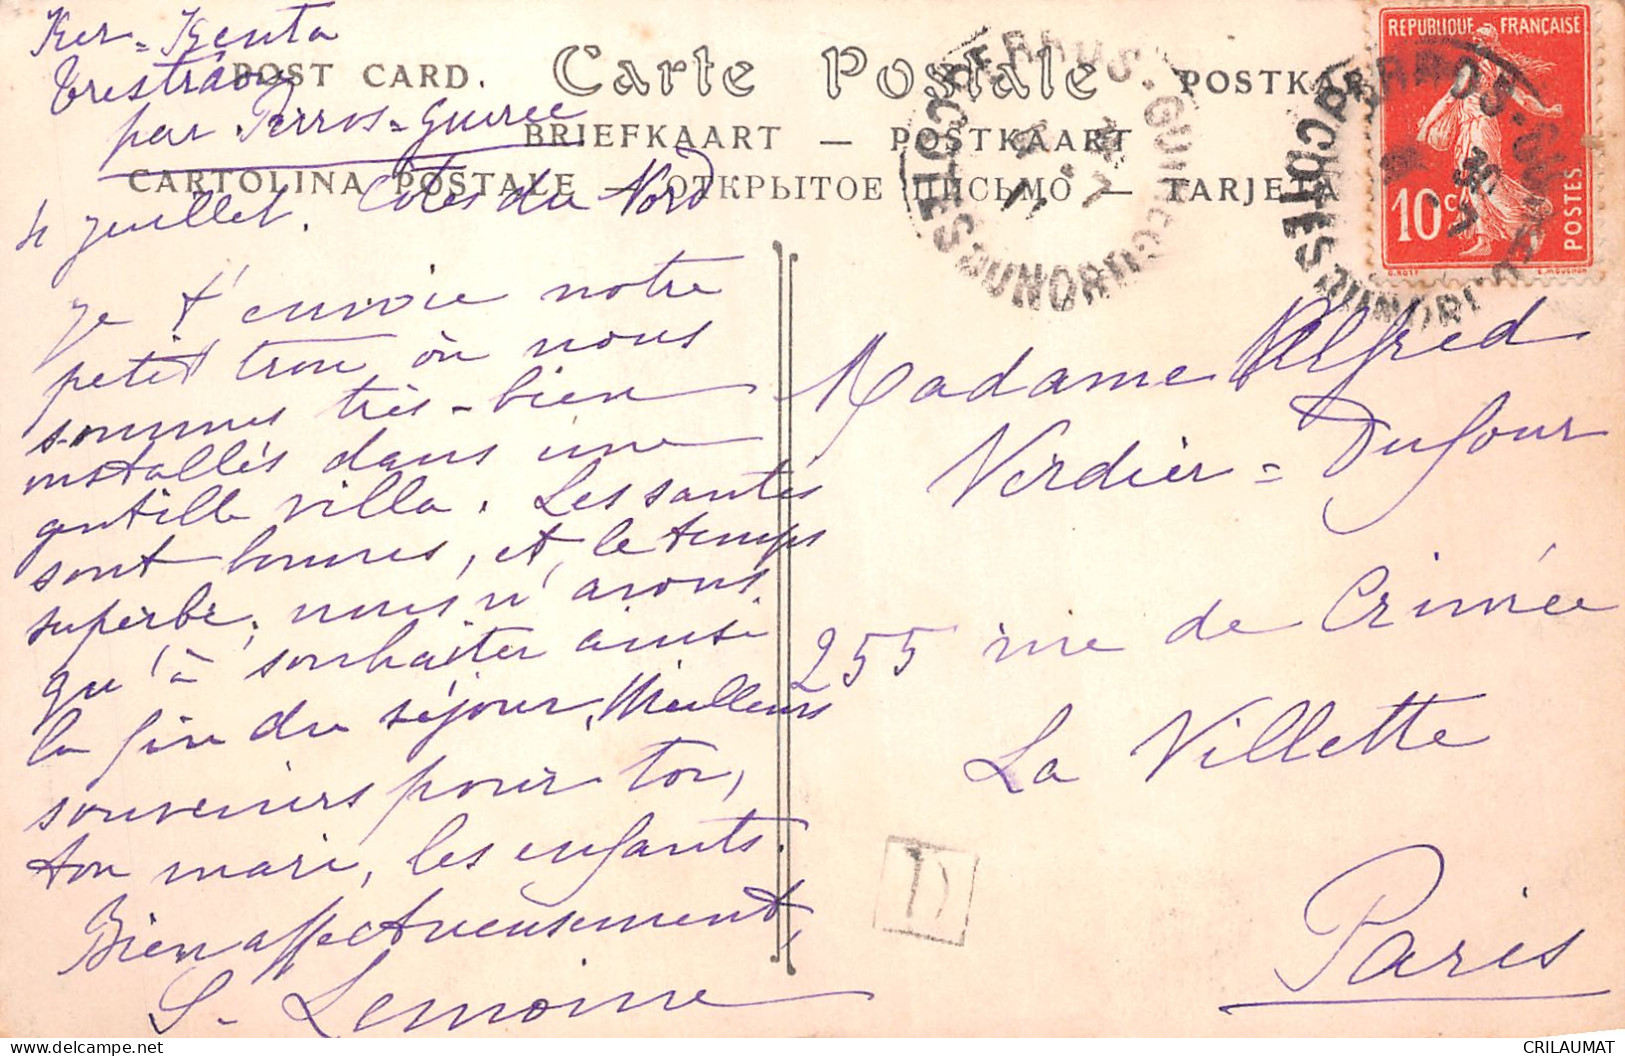 Ker-Kenta
Trestraou
par Perros-Guirec
Côtes du Nord
4 juillet.
POST CARD.
Carte Postale
POSTKAR
BRIEFKAART — POSTKAART
CARTOLINA POSTALE — ОТКРЫТОЕ ПИСЬМО — TARJETA
REPUBLIQUE FRANÇAISE
10c
POSTES
PERROS-GUIREC
COTES-DU-NORD
PERROS-GUIREC
COTES-DU-NORD
Je t'envoie notre
petit trou où nous
sommes très-bien
installés dans une
gentille villa. Les santés
sont bonnes, et le temps
superbe; nous n'avons
qu'à souhaiter ainsi
la fin du séjour. Meilleurs
souvenirs pour toi,
ton mari, les enfants.
Bien affectueusement,
S. Lemoine
Madame Alfred
Verdier-Dufour
255 rue de Crimée
La Villette
Paris
D
CRILAUMAT